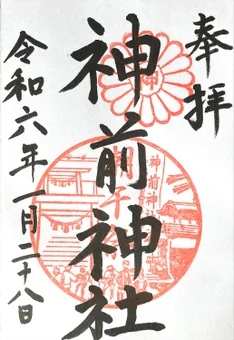 奉拝
神前神社
神前神社
令和六年一月二十八日